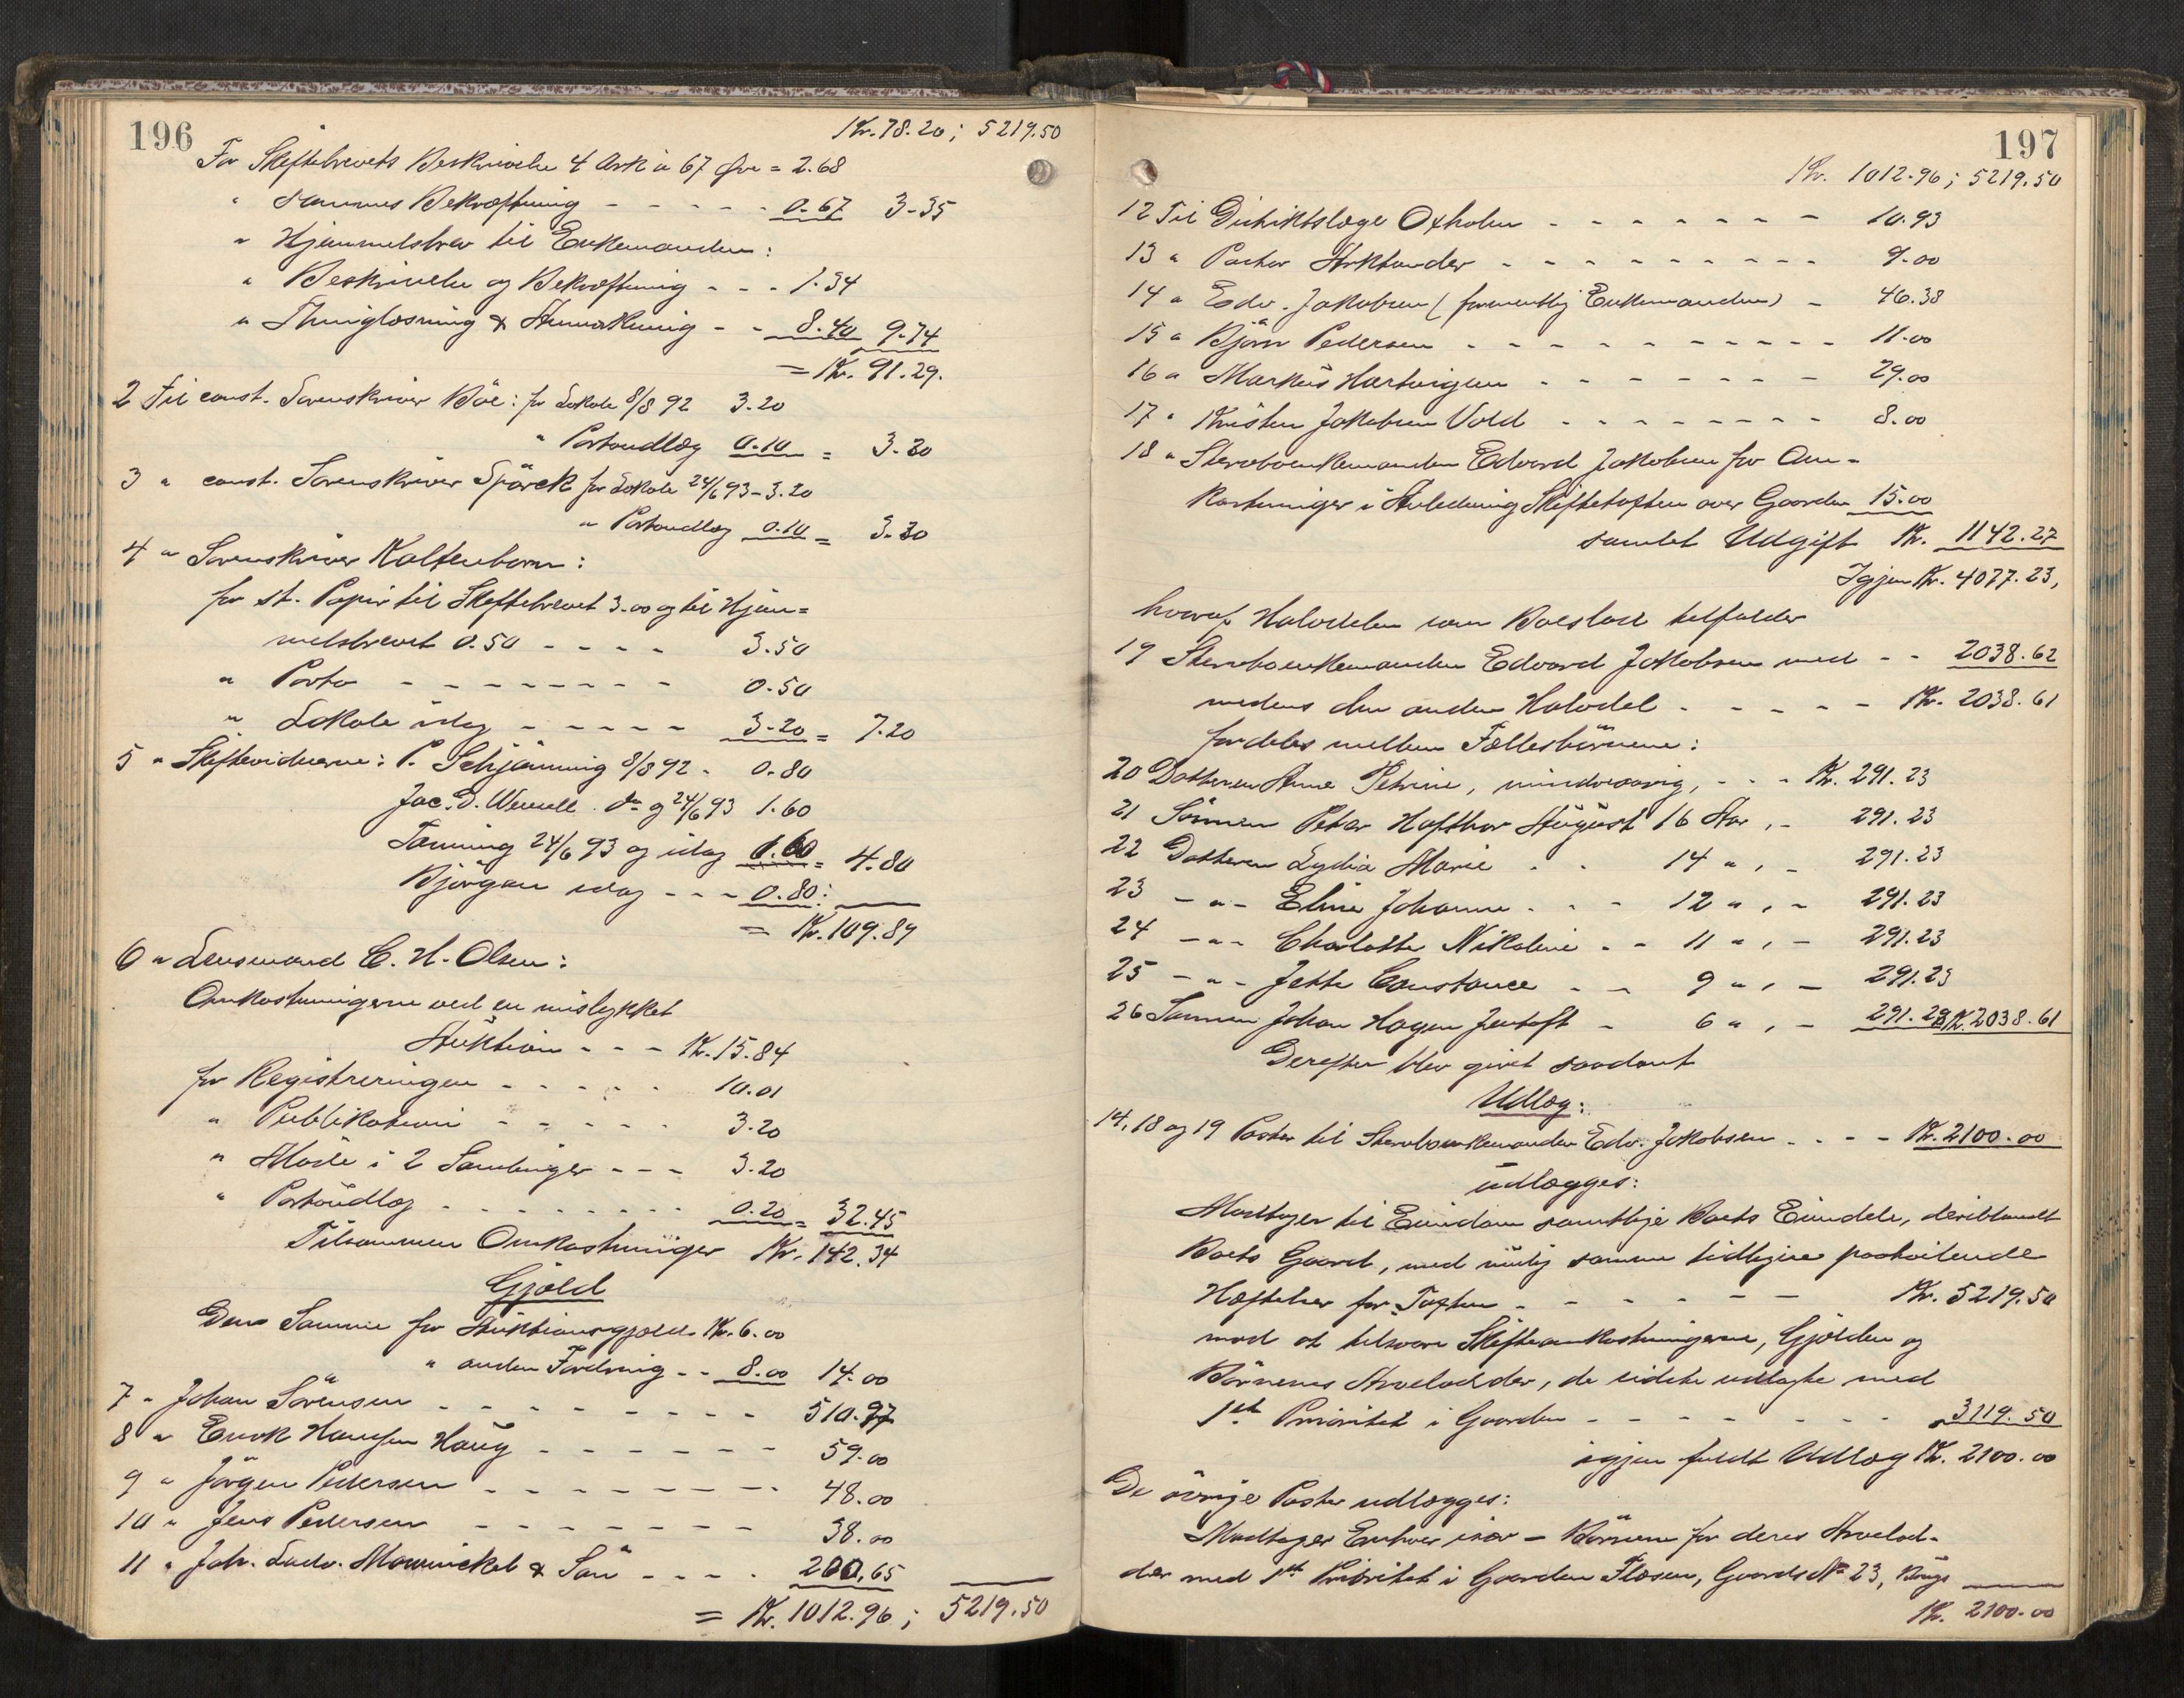 196
Kr. 78.20; 5219.50
For Skiftebrevets Beskrivelse 4 Ark a 67 Øre = 2.68
" sammes Bekræftning - - - - - 0.67 3-35
" Hjemmelsbrev til Enkemanden:
" Beskrivelse og Bekræftning - - - 1.34
" Thinglæsning & Anmærkning - - 8.40 9.74
= Kr. 91.29.
2 Til const. Sorenskriver Böe: for Lokale 8/8 92 3.20
" Portoudlæg 0.10 = 3.30
3 " const. Sorenskriver Spörck for Lokale 24/6 93 - 3.20
" Portoudlæg 0.10 = 3.30
4 " Sorenskriver Kaltenborn:
for st. Papir til Skiftebrevet 3.00 og til Hjem=
melsbrevet 0.50 - - - - 3.50
" Porto - - - - - - - - 0.50
" Lokale idag - - - - - 3.20 = 7.20
5 " Skiftevidnerne: P. Schjönning 8/8 92 - 0.80
Jac. D. Wessell do og 24/6 93 1.60
Tanning 24/6 93 og idag 1.60 = 4.80
Björgan idag - - - 0.80:
= Kr. 109.89
6 " Lensmand C. H. Olsen:
Omkostningerne ved en mislykket
Auktion - - - Kr. 15.84
for Registreringen - - - - - 10.01
" Publikationen - - - - - 3.20
" Möde i 2 Samlinger - - - 3.20
" Portoudlæg - - - - - - - - 0.20 = 32.45
Tilsammen Omkostninger Kr. 142.34
Gjæld
Den Samme for Auktionsgjæld Kr. 6.00
" anden Fordring - - 8.00 14.00
7 " Johan Sörensen - - - - - - - - 510.97
8 " Enok Hansen Haug - - - - - - 59.00
9 " Jörgen Pedersen - - - - - - - - 48.00
10 " Jens Pedersen - - - - - - - 38.00
11 " Joh. Ludv. Mowinckel & Sön - - - - 200.65
= Kr. 1012.96; 5219.50
197
Kr. 1012.96; 5219.50
12 Til Distriktslæge Oxholm - - - - - - - 10.93
13 " Pastor Arktander - - - - - - - - - 9.00
14 " Edv. Jakobsen (formentlig Enkemanden) - 46.38
15 " Björn Pedersen - - - - - - - - - - 11.00
16 " Markus Hartvigsen - - - - - - - 29.00
17 " Kristen Jakobsen Vold - - - - - - - - 8.00
18 " Stervboenkemanden Edvard Jakobsen for Om-
kostninger i Anledning Skiftetaxten over Gaarden 15.00
samlet Udgift Kr. 1142.27
Igjen Kr. 4077.23,
hvoraf Halvdelen som Boeslod tilfalder
19 Stervboenkemanden Edvard Jakobsen med - - 2038.62
medens den anden Halvdel - - - - - Kr. 2038.61
fordeles mellem Fællesbörnene:
20 Datteren Anne Petrine, mindreaarig, - - - Kr. 291.23
21 Sönnen Peter Hafthor August 16 Aar, - 291.23
22 Datteren Lydia Marie - - 14 " , - 291.23
23 - " - Eline Johanne - - - 12 " , - 291.23
24 - " - Charlotte Nikoline - - 11 " , - 291.23
25 - " - Jette Constance - - 9 " , - 291.23
26 Sönnen Johan Hagen Jentoft - 6 " , - 291.23 Kr. 2038.61
Derefter blev givet saadant
Udlæg:
14, 18 og 19 Poster til Stervboenkemanden Edv. Jakobsen - - - - Kr. 2100.00
udlægges:
Modtager til Eiendom samtlige Boets Eiendele, deriblandt
Boets Gaard, med mulig samme tidligere paahvilende
Hæftelser for Taxten - - - - - - Kr. 5219.50
mod at tilsvare Skifteomkostningerne, Gjælden og
Börnenes Arvelodder, de sidste udlagte med
1ste Prioritet i Gaarden - - - - - - - - 3119.50
igjen fuldt Udlæg Kr. 2100.00
De övrige Poster udlægges:
Modtager Enhver især - Börnene for deres Arvelod-
der med 1ste Prioritet i Gaarden Flosen, Gaards No 23, Brugs
Kr. 2100.00